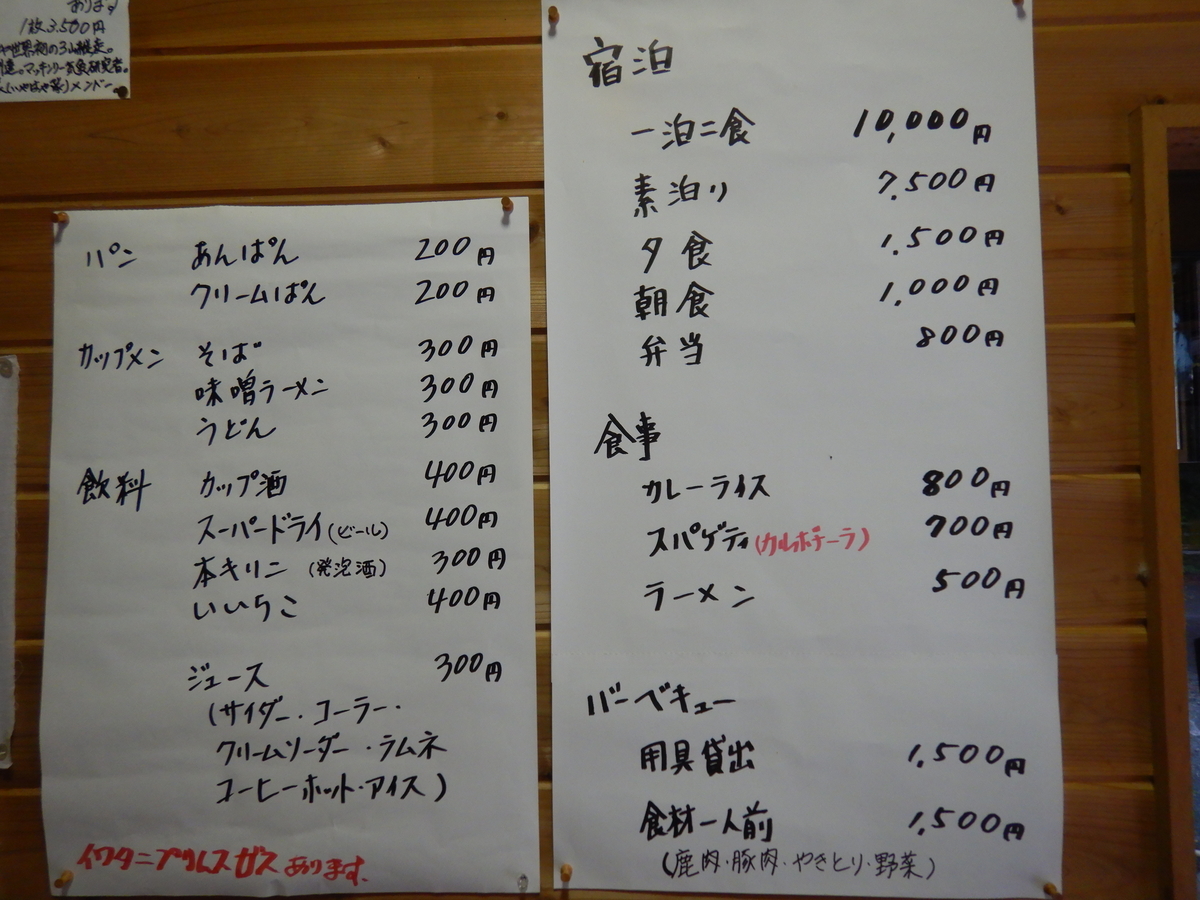 あります
1枚3.500円
パン あんぱん 200円
クリームぱん 200円
カップメン そば 300円
味噌ラーメン 300円
うどん 300円
飲料 カップ酒 400円
スーパードライ(ビール) 400円
本キリン (発泡酒) 300円
いいちこ 400円
ジュース 300円
(サイダー・コーラー・
クリームソーダー・ラムネ
コーヒーホット・アイス)
イワタニプリムスガスあります.
宿泊
一泊二食 10,000円
素泊り 7.500円
夕食 1.500円
朝食 1,000円
弁当 800円
食事
カレーライス 800円
スパゲティ(カルボナーラ) 700円
ラーメン 500円
バーベキュー
用具貸出 1,500円
食材一人前 1,500円
(鹿肉・豚肉・やきとり・野菜)